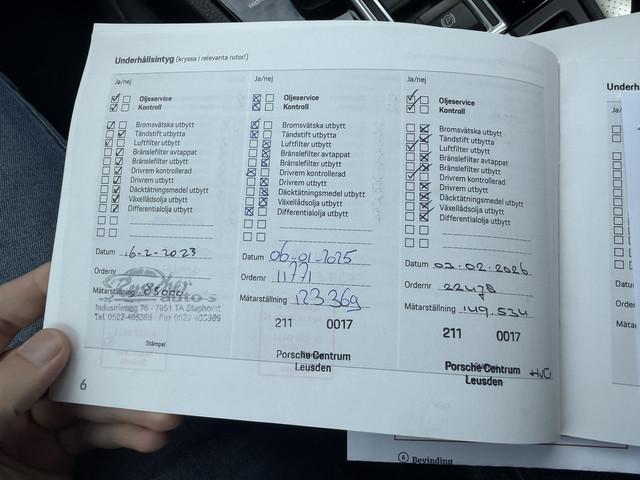 Underhållsintyg (kryssa i relevanta rutor!)
Ja/nej
Oljeservice
Kontroll
Bromsvätska utbytt
Tändstift utbytta
Luftfilter utbytt
Bränslefilter avtappat
Bränslefilter utbytt
Drivrem kontrollerad
Drivrem utbytt
Däcktätningsmedel utbytt
Växellådsolja utbytt
Differentialolja utbytt
Datum 16-2-2023
Ordernr
Mätarställning 85000
auto's
Industrieweg 76 - 7951 TA Staphorst
Stämpel
6
Ja/nej
Oljeservice
Kontroll
Bromsvätska utbytt
Tändstift utbytta
Luftfilter utbytt
Bränslefilter avtappat
Bränslefilter utbytt
Drivrem kontrollerad
Drivrem utbytt
Däcktätningsmedel utbytt
Växellådsolja utbytt
Differentialolja utbytt
Datum 06-01-2025
Ordernr 11771
Mätarställning 123369
211 0017
Porsche Centrum
Leusden
Ja/nej
Oljeservice
Kontroll
Bromsvätska utbytt
Tändstift utbytta
Luftfilter utbytt
Bränslefilter avtappat
Bränslefilter utbytt
Drivrem kontrollerad
Drivrem utbytt
Däcktätningsmedel utbytt
Växellådsolja utbytt
Differentialolja utbytt
Datum 03-02-2026
Ordernr 22478
Mätarställning 149.534
211 0017
Porsche Centrum
Leusden
Underh
Ja/
Datu
Orde
Mäta
6 Bevinding